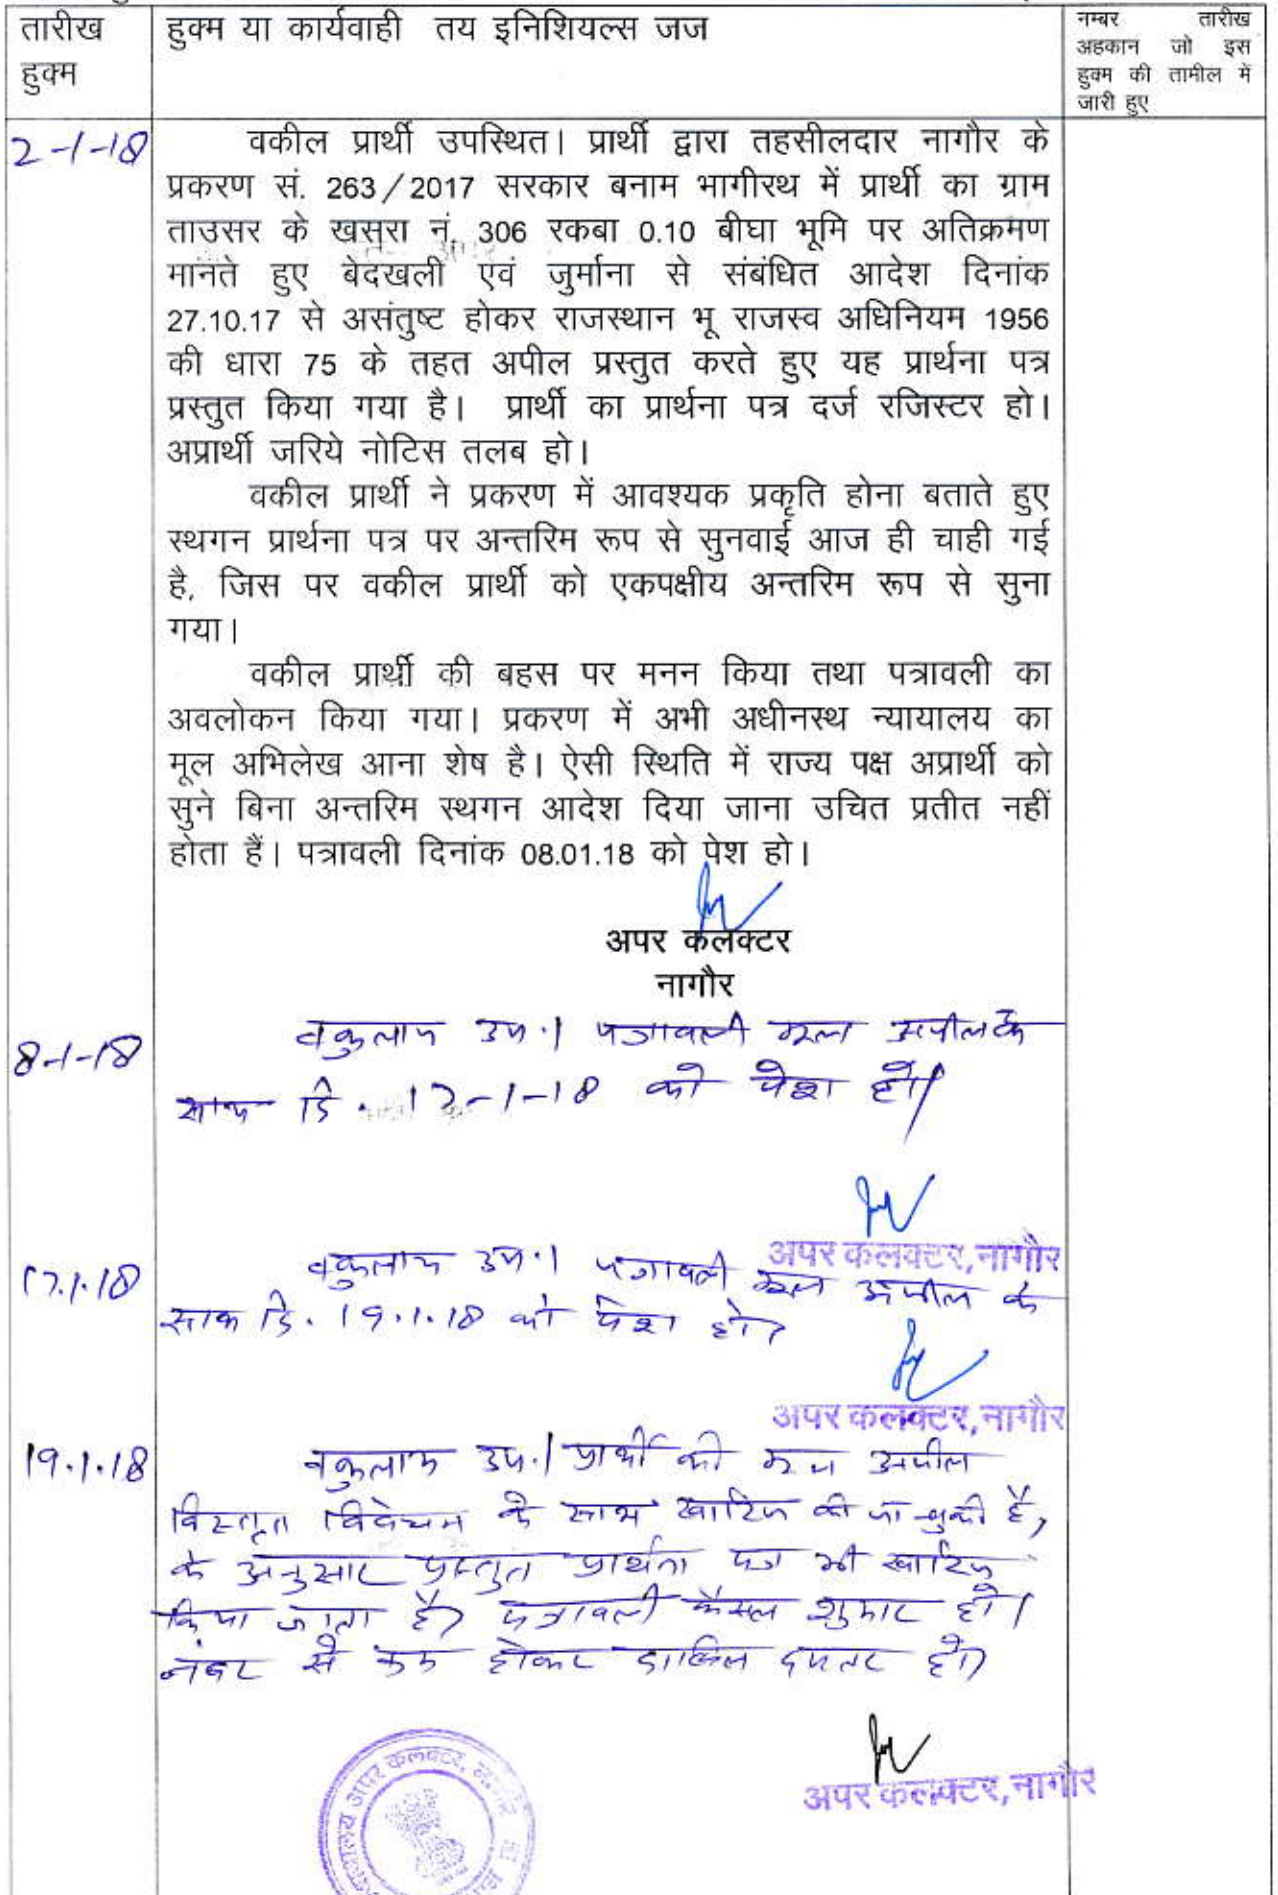 तारीख
हुक्म
हुक्म या कार्यवाही तय इनिशियल्स जज
नम्बर तारीख
अहकान जो इस
हुक्म की तामील में
जारी हुए
2-1-18
वकील प्रार्थी उपस्थित। प्रार्थी द्वारा तहसीलदार नागौर के
प्रकरण सं. 263/2017 सरकार बनाम भागीरथ में प्रार्थी का ग्राम
ताउसर के खसरा नं. 306 रकबा 0.10 बीघा भूमि पर अतिक्रमण
मानते हुए बेदखली एवं जुर्माना से संबंधित आदेश दिनांक
27.10.17 से असंतुष्ट होकर राजस्थान भू राजस्व अधिनियम 1956
की धारा 75 के तहत अपील प्रस्तुत करते हुए यह प्रार्थना पत्र
प्रस्तुत किया गया है। प्रार्थी का प्रार्थना पत्र दर्ज रजिस्टर हो।
अप्रार्थी जरिये नोटिस तलब हो।
वकील प्रार्थी ने प्रकरण में आवश्यक प्रकृति होना बताते हुए
स्थगन प्रार्थना पत्र पर अन्तरिम रूप से सुनवाई आज ही चाही गई
है, जिस पर वकील प्रार्थी को एकपक्षीय अन्तरिम रूप से सुना
गया।
वकील प्रार्थी की बहस पर मनन किया तथा पत्रावली का
अवलोकन किया गया। प्रकरण में अभी अधीनस्थ न्यायालय का
मूल अभिलेख आना शेष है। ऐसी स्थिति में राज्य पक्ष अप्रार्थी को
सुने बिना अन्तरिम स्थगन आदेश दिया जाना उचित प्रतीत नहीं
होता हैं। पत्रावली दिनांक 08.01.18 को पेश हो।
अपर कलक्टर
नागौर
8-1-18
वकुलाय उप.। पत्रावली मूल अपील के
साथ दि. 17-1-18 को पेश हो।
अपर कलक्टर, नागौर
17.1.18
वकुलाय उप.। पत्रावली मूल अपील के
साथ दि. 19.1.18 को पेश हो।
अपर कलक्टर, नागौर
19.1.18
वकुलाय उप.। प्रार्थी की मूल अपील
विस्तृत विवेचन के साथ खारिज की जा चुकी है,
के अनुसार प्रस्तुत प्रार्थना पत्र भी खारिज
किया जाता है। पत्रावली फैसल शुमार हो।
नंबर से कम होकर दाखिल दफ्तर हो।
अपर कलक्टर, नागौर
कार्यालय अपर कलक्टर, नागौर